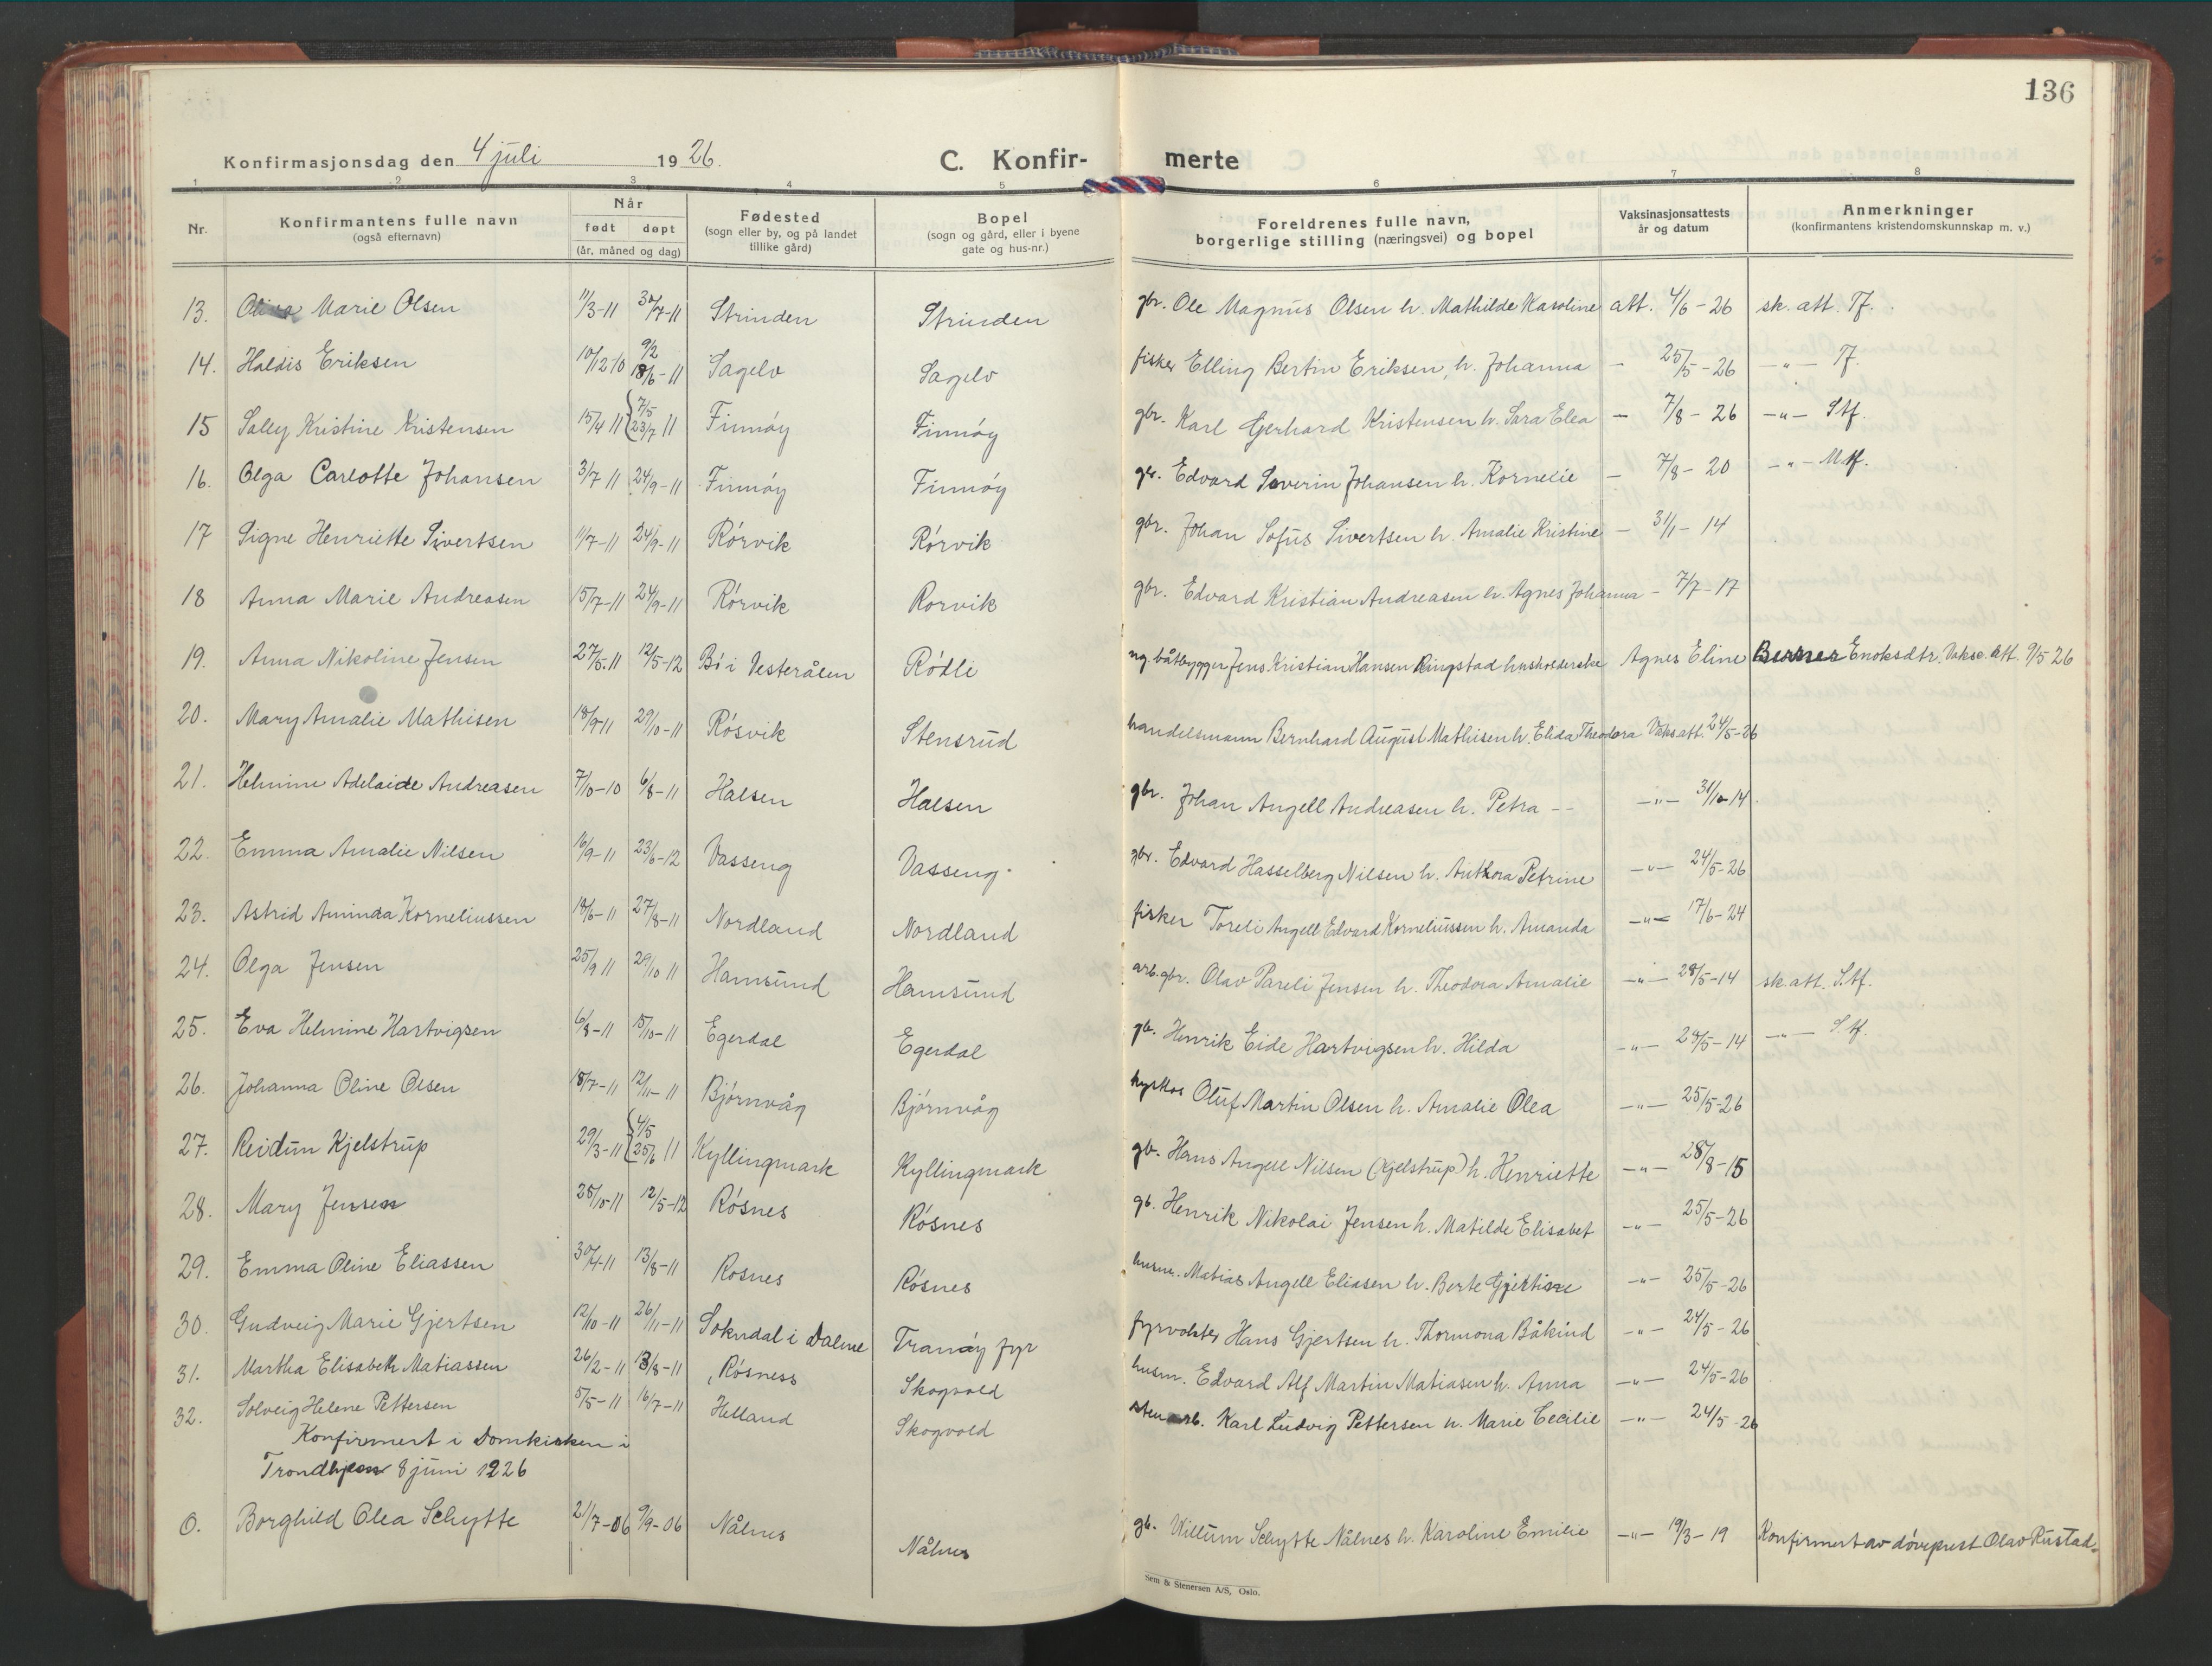 136
Konfirmasjonsdag den 4 juli 1926.
C. Konfir- merte
1 2 3 4 5 6 7 8
Nr. Konfirmantens fulle navn (også efternavn) Når født døpt (år, måned og dag) Fødested (sogn eller by, og på landet tillike gård) Bopel (sogn og gård, eller i byene gate og hus-nr.) Foreldrenes fulle navn, borgerlige stilling (næringsvei) og bopel Vaksinasjonsattests år og datum Anmerkninger (konfirmantens kristendomskunnskap m. v.)
13. Marie Olsen 11/3-11 30/7-11 Strinden Strinden gbr. Ole Magnus Olsen h. Mathilde Karoline att. 4/6-26 sk. att. Tf.
14. Haldis Eriksen 10/12 10 9/2 18/6-11 Sagelv Sagelv fisker Elling Bertin Eriksen, h. Johanna - 25/5-26 -"- Tf.
15 Sally Kristine Kristensen 15/4 11 {7/5 23/7 11 Finnøy Finnøy gbr. Karl Gerhard Kristensen h. Sara Elea - 7/8-26 -"- Stf.
16. Olga Carlotte Johansen 3/7 11 24/9-11 Finnøy Finnøy gbr. Edvard Severin Johansen h. Kornelie - 7/8-20 -"- Mtf.
17 Signe Henriette Sivertsen 11/7-11 24/9-11 Rørvik Rørvik gbr. Johan Sofus Sivertsen h. Amalie Kristine - 31/1-14
18 Anna Marie Andreasen 15/7-11 24/9-11 Rørvik Rorvik gbr. Edvard Kristian Andreasen h. Agnes Johanna - 7/7-17
19. Anna Nikoline Jensen 27/5.11 12/5-12 Bø i Vesterålen Rødli ug. båtbygger Jens Kristian Hansen Ringstad husholderske Agnes Eline Berner Enoksdtr. Vaks. att. 9/5 26
20. Mary Amalie Mathisen 18/9-11 29/10-11 Røsvik Stensrud handelsmann Bernhard August Mathisen h. Elida Theodora Vaks.att. 24/5-26
21. Helmine Adelaide Andreasen 7/10-10 6/8-11 Halsen Halsen gbr. Johan Angell Andreasen h. Petra -- -"- 31/10-14.
22. Emma Amalie Nilsen 16/9-11 23/6-12 Vasseng Vasseng. gbr. Edvard Hasselberg Nilsen h. Anthora Petrine -"- 24/5-26
23. Astrid Aminda Korneliussen 18/6-11 27/8-11 Nordland Nordland fisker Toreli Angell Edvard Korneliussen h. Amanda -"- 17/6-24
24. Olga Jensen 25/9 11 29/10 11 Hamsund Hamsund arb. gbr. Olav Pareli Jensen h. Theodora Amalie -"- 28/5-14 sk. att. S.tf.
25. Eva Helmine Hartvigsen 6/8-11 15/10-11 Egerdal Egerdal gb. Henrik Eide Hartvigsen h. Hilda -"- 28/5-14 -"- S.tf.
26. Johanna Oline Olsen 18/7-11 12/11-11 Bjørnvåg Bjørnvåg kyrkos Oluf Martin Olsen h. Amalie Olea -"- 25/5-26
27. Reidun Kjelstrup 29/3-11 {4/5 25/6 11 Kyllingmark Kyllingmark gb. Hans Angell Nilsen (Kjelstrup) h. Henriette -"- 28/8-15
28. Mary Jensen 28/10-11 12/5-12 Røsnes Røsnes gb. Henrik Nikolai Jensen h. Matilde Elisabet -"- 25/5-26
29. Emma Oline Eliassen 30/4-11 13/8-11 Rosnes Røsnes husm. Matias Angell Eliasen h. Berte Gjertine -"- 25/5-26
30. Gudveig Marie Gjertsen 12/10-11 26/11-11 Sokndal i Dalene Tranøy fyr fyrvokter Hans Gjertsen h. Thormona Båkind -"- 24/5-26
31. Martha Elisabeth Matiassen 26/2-11 13/8-11 Røsness Skogvold husm. Edvard Alf Martin Matiasen h. Anna -"- 24/5-26
32. Solveig Helene Pettersen 5/5-11 16/7-11 Helland Skogvold stenarb. Karl Ludvig Pettersen h. Marie Cecilie -"- 24/5-26
Konfirmert i Domkirken i
Trondhjem 8 juni 1926
0. Borghild Olea Schytte 21/7-06 9/9-06 Nålnes Nålnes gb. Villum Schytte Nålnes h. Karoline Emilie -"- 19/3-19 Konfirmert av døveprest Olav Rustad.
Sem & Stenersen A/S, Oslo.